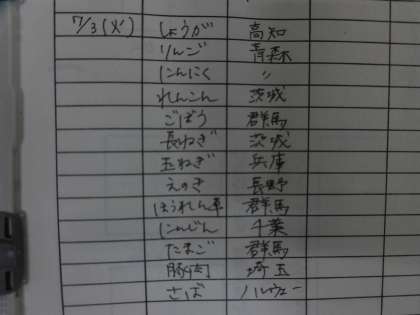 7/3(火) しょうが 高知
りんご 青森
にんにく 〃
れんこん 茨城
ごぼう 群馬
長ねぎ 茨城
玉ねぎ 兵庫
えのき 長野
ほうれん草 群馬
にんじん 千葉
たまご 群馬
豚肉 埼玉
さば ノルウェー